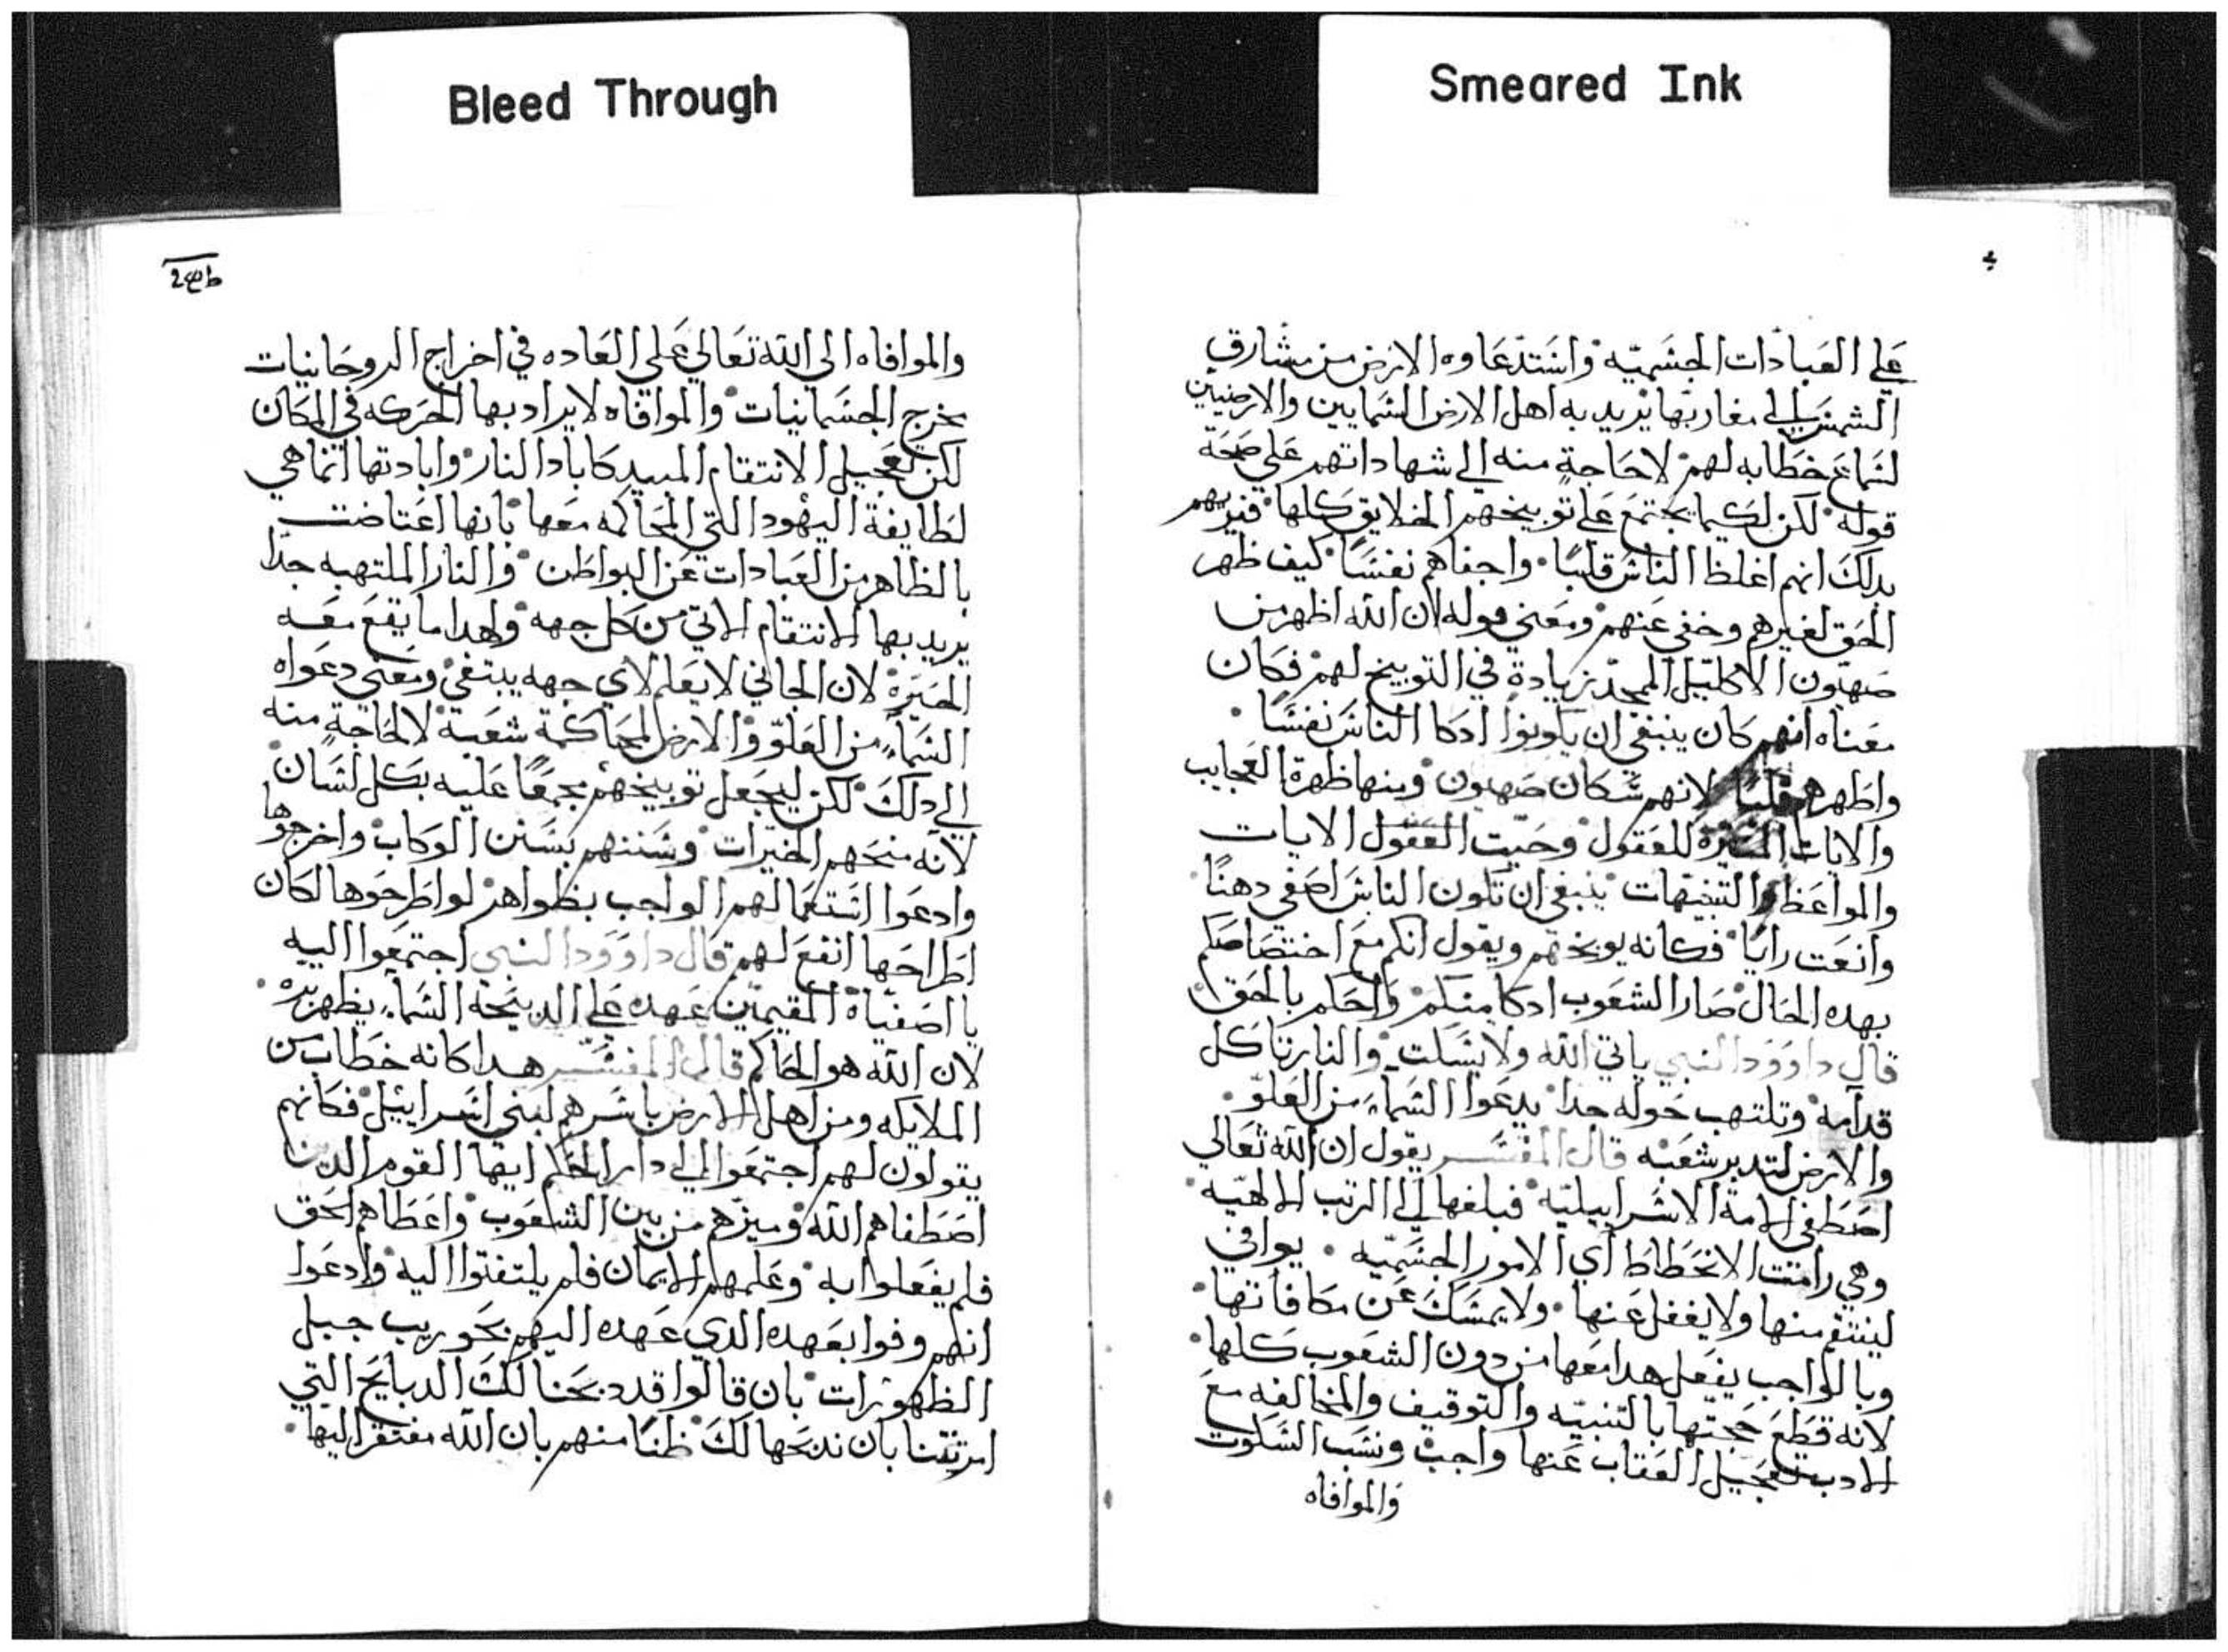 Bleed Through
Smeared Ink
علي العبادات الجسميه واستدعاوه الارض من مشارق
الشمس الي مغاربها يريد به اهل الارض السمايين والارضيين
لسماع خطابه لهم لا حاجة منه الي شهاداتهم علي صحة
قوله لكن لكيما يجتمع علي توبيخهم الخلايق كلها فيريهم
بدلك انهم اغلظ الناس قلبًا واجفاهم نفسًا كيف ظهر
الحق لغيرهم وخفي عنهم ومعني قوله لان الله اظهر من
صهيون الاكليل الممجد زيادة في التوبيخ لهم فكان
معناه انهم كان ينبغي ان يكونوا ادكا الناس نفسًا
واطهرهم قلبًا لانهم سكان صهيون ومنها ظهرة العجايب
والايات للعقول وحيت العقول الايات
والمواعظ والتنبيهات ينبغي ان تكون الناس اصفي دهنًا
وانعت رايًا فكانه يوبخهم ويقول انكم مع اختصاصكم
بهده الحال صار الشعوب ادكا منكم واحكم بالحق
قال داوود النبي ياتي الله ولا يسكت والنار تاكل
قدامه وتلتهب حوله جدا يدعوا السماء من العلو
والارض لتدبر شعبه قال المفسر يقول ان الله تعالي
اصطفي الامة الاسراييليه فبلغها الي الرتب الالهيه
وهي رامت الانحطاط اي الامور الجسميه يوافي
لينتقم منها ولا يغفل عنها ولا يمسك عن مكافاتها
وبالواجب يفعل هدا معها من دون الشعوب كلها
لانه قطع حجتها بالتنبيه والتوقيف والمخالفه مع
الادب تعجيل العقاب عنها واجب ونسب السكوت
والموافاه
والموافاه الى الله تعالي علي العاده في اخراج الروحانيات
مخرج الجسمانيات والموافاه لا يراد بها الحركه في المكان
لكن تعجيل الانتقام المبيد كاباد النار وابادتها انما هي
لطايفة اليهود التي المحاكمه معها بانها اعتاضت
بالظاهر من العبادات عن البواطن والنار الملتهبه جدا
يريد بها الانتقام الاتي من كل جهه ولهدا ما يقع معه
الحيرة لان الجاني لا يعلم لاي جهه يبتغي ومعني دعواه
السماء من العلو والارض لمحاكمة شعبه لا لحاجة منه
الي دلك لكن ليجعل توبيخهم مجمعًا عليه بكل لسان
لانه منحهم الخيرات وسننهم بسنن الوكاب واخرجوها
وادعوا استعمالهم الواجب بظواهر لو اطرحوها لكان
اطراحها انفع لهم قال داوود النبي اجتمعوا اليه
يا اصفياه المقيمين عهده علي الدبيحة السماء يظهر بره
لان الله هو الحاكم قال المفسر هدا كانه خطاب من
الملايكه ومن اهل الارض باسرهم لبني اسراييل فكانهم
يقولون لهم اجتمعوا الي دار الحكم ايها القوم الدين
اصطفاهم الله وميزهم من بين الشعوب واعطاهم الحق
فلم يفعلوا به وعلمهم الايمان فلم يلتفتوا اليه وادعوا
انهم وفوا بعهده الدي عهده اليهم بحوريب جبل
الظهورات بان قالوا قد دبحنا لك الدبايح التي
امرتنا بان ندبحها لك ظنًا منهم بان الله مفتقر اليها